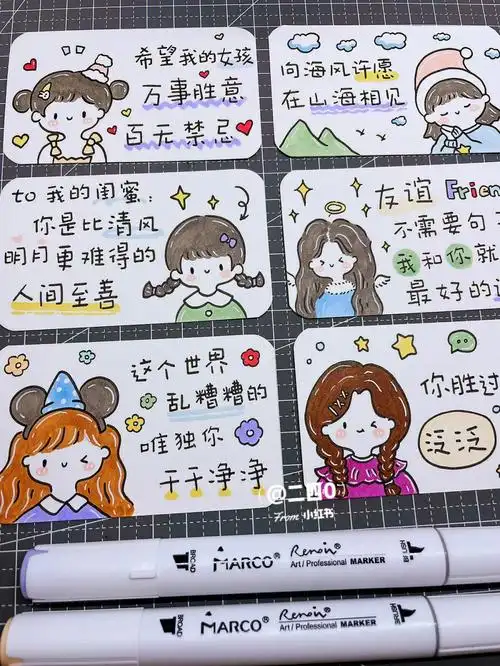 希望我的女孩
万事胜意
百无禁忌
向海风许愿
在山海相见
to 我的闺蜜:
你是比清风
明月更难得的
人间至善
友谊 Frien
不需要句
我和你就
最好的
这个世界
乱糟糟的
唯独你
干干净净
你胜过
泛泛
@二四0
From 小红书
BROAD MARCO Renoir
Art / Professional MARKER
BROAD MARCO Renoir
Art / Professional MARKER